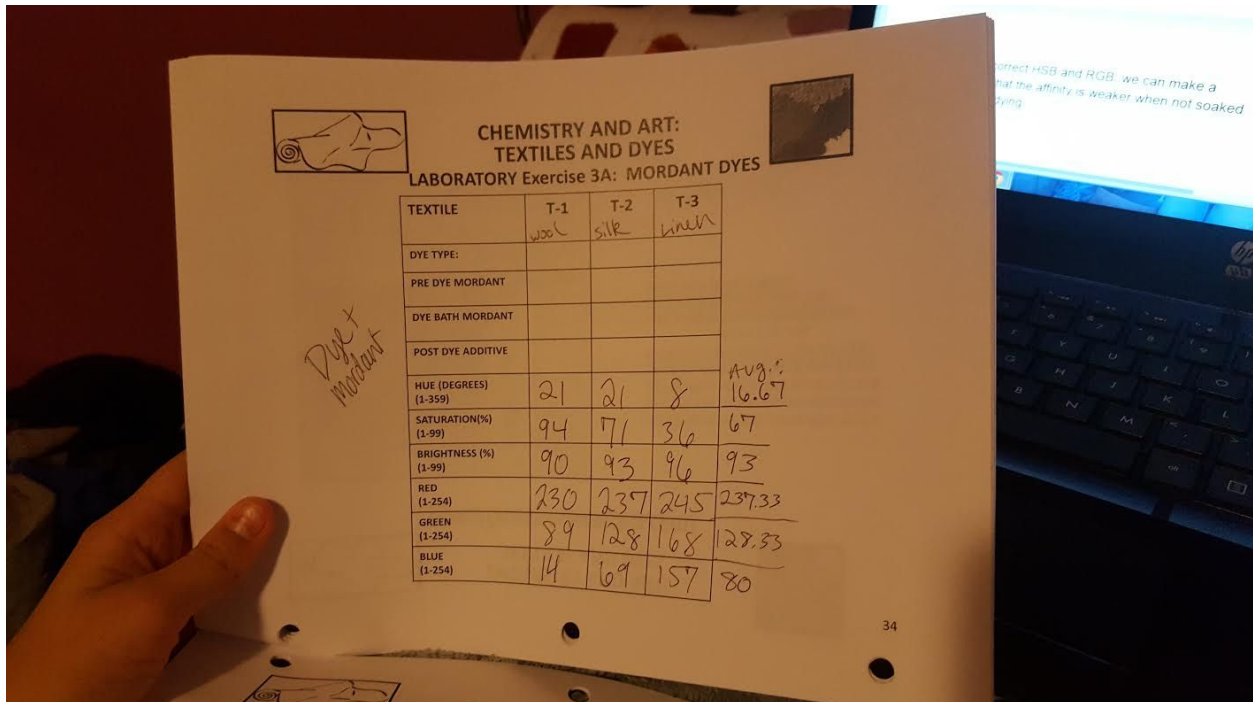 CHEMISTRY AND ART:
TEXTILES AND DYES
LABORATORY Exercise 3A: MORDANT DYES
TEXTILE T-1 T-2 T-3
wool silk Linen
DYE TYPE:
PRE DYE MORDANT
DYE BATH MORDANT
POST DYE ADDITIVE
Dye +
mordant
Avg.:
HUE (DEGREES)
(1-359) 21 21 8 16.67
SATURATION(%)
(1-99) 94 71 36 67
BRIGHTNESS (%)
(1-99) 90 93 96 93
RED
(1-254) 230 237 245 237.33
GREEN
(1-254) 89 128 168 128.33
BLUE
(1-254) 14 69 157 80
34
correct HSB and RGB: we can make a
that the affinity is weaker when not soaked
dying
hp